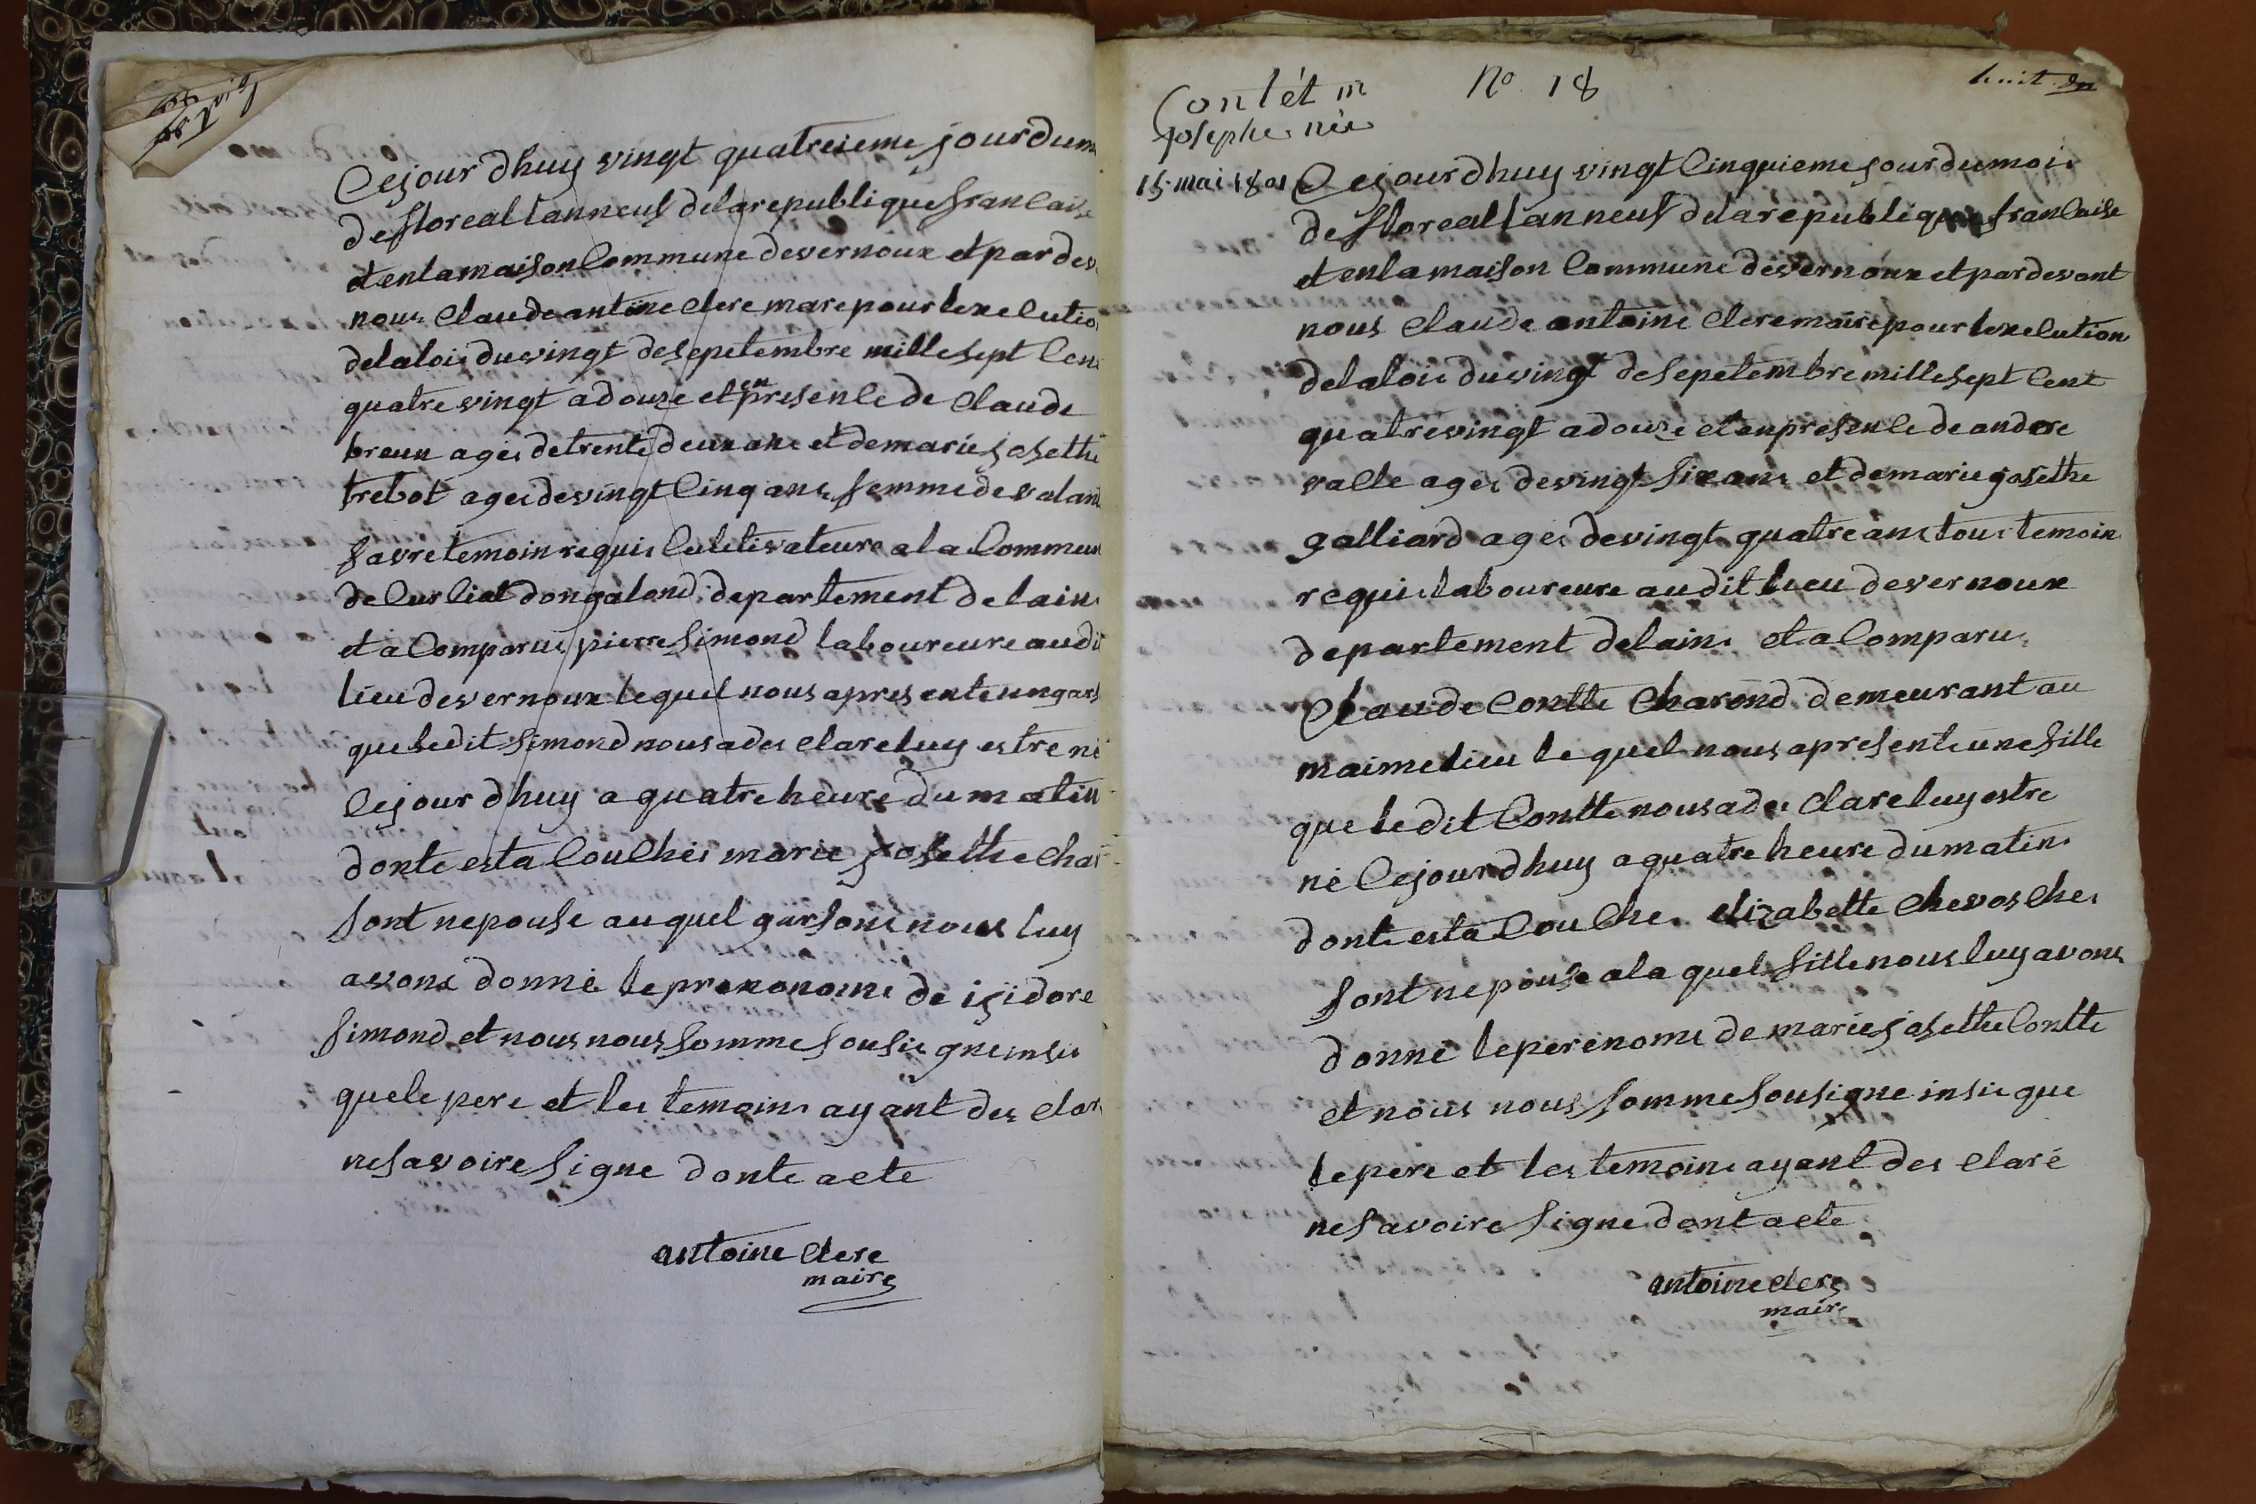 Cejour dhuy vingt quatreieme jourdum
de floreal lanneuf delarepublique francaise
et enlamaison Commune devernoux et pardev
nous Claude antoine Clere mare pour lexecutio
delaloie duvingt desepetembre mille sept Cen
quatre vingt adouze et en presence de Claude
breux ages detrente deux ans et demarie josethe
trebot ages devingt Cinq ans femme de valan
favre temoin requis Cultivateure a la Commun
deCurliat dongalond departement de lain
et a Comparu pierre Simond laboureure audi
lieu devernoux lequel nous apresente ungars
que ledit Simond nous ades Clareluy estre né
Cejour dhuy a quatre heure du matin
donte esta Couchés marie josethe Char
sont nepouse au quel garsons nous luy
avons donné leprexonome de isidore
Simond et nous nous Somme Sousie gneinsi
quele pere et les temoins ayant des Clar
nesavoire Signe donte acte
antoine Clere
maire
Contét m
Josephe née
15 mai 1801
No 18
huit
Cejour dhuy vingt Cinquieme jour dumois
de floreal lanneuf delarepublique francaise
et enlamaison Commune devernoux et pardevant
nous Claude antoine Clere maire pour lexecution
delaloie duvingt desepetembre mille sept Cent
quatrevingt adouze et enpresence de andere
valle ages devingt Six ans et demarie josethe
galliard ages devingt quatre ans tous temoin
requis laboureure audit lieu devernoux
departement delain et a Comparu
Claude Contte Charond demeurant au
maime lieu lequel nous apresente une fille
que ledit Contte nous ades Clareluy estre
né Cejour dhuy a quatre heure dumatin
donte esta Couche elizabette Chevosches
sont nepouse ala quel fille nous luy avons
donné leperenome de marie josethe Contte
et nous nous Somme Sousigne insie que
lepere et les temoins ayant des Claré
nesavoire Signe dont acte
antoine Clere
maire